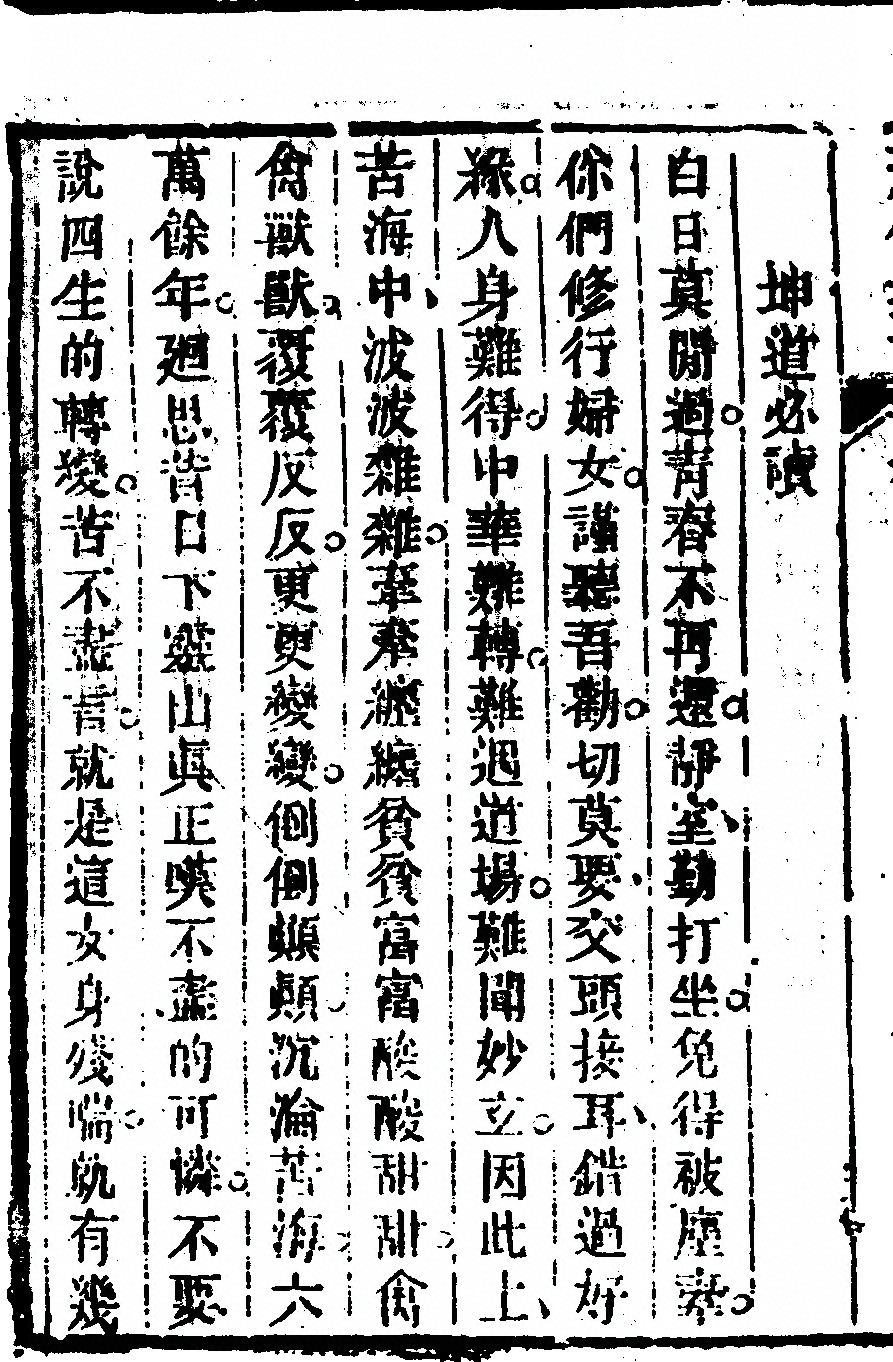 坤道必讀
白日莫閒過青春不再還靜室勤打坐免得被塵牽
你們修行婦女謹聽吾勸切莫要交頭接耳錯過好
緣人身難得中華難轉難遇道場難聞妙立因此上
苦海中波波雜雜牽牽纏纏貧貧富富酸酸甜甜禽
禽獸獸覆覆反反更更變變倒倒顛顛沉淪苦海六
萬餘年廻思昔日下靈山眞正嘆不盡的可憐不要
說四生的轉變苦不盡言就是這女身殘喘就有幾